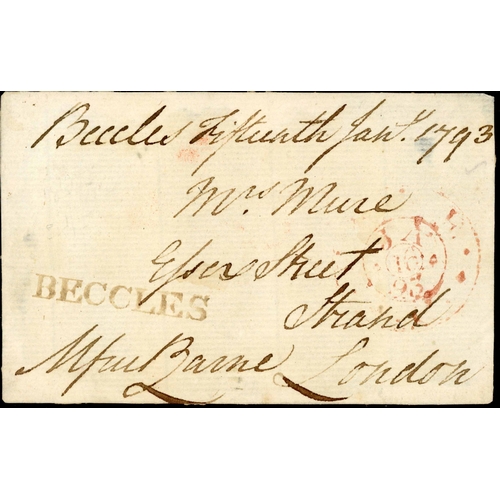 Beccles Fifteenth Jany. 1793
Mrs Mure
Essex Street
Strand
BECCLES
Barne London
16
93